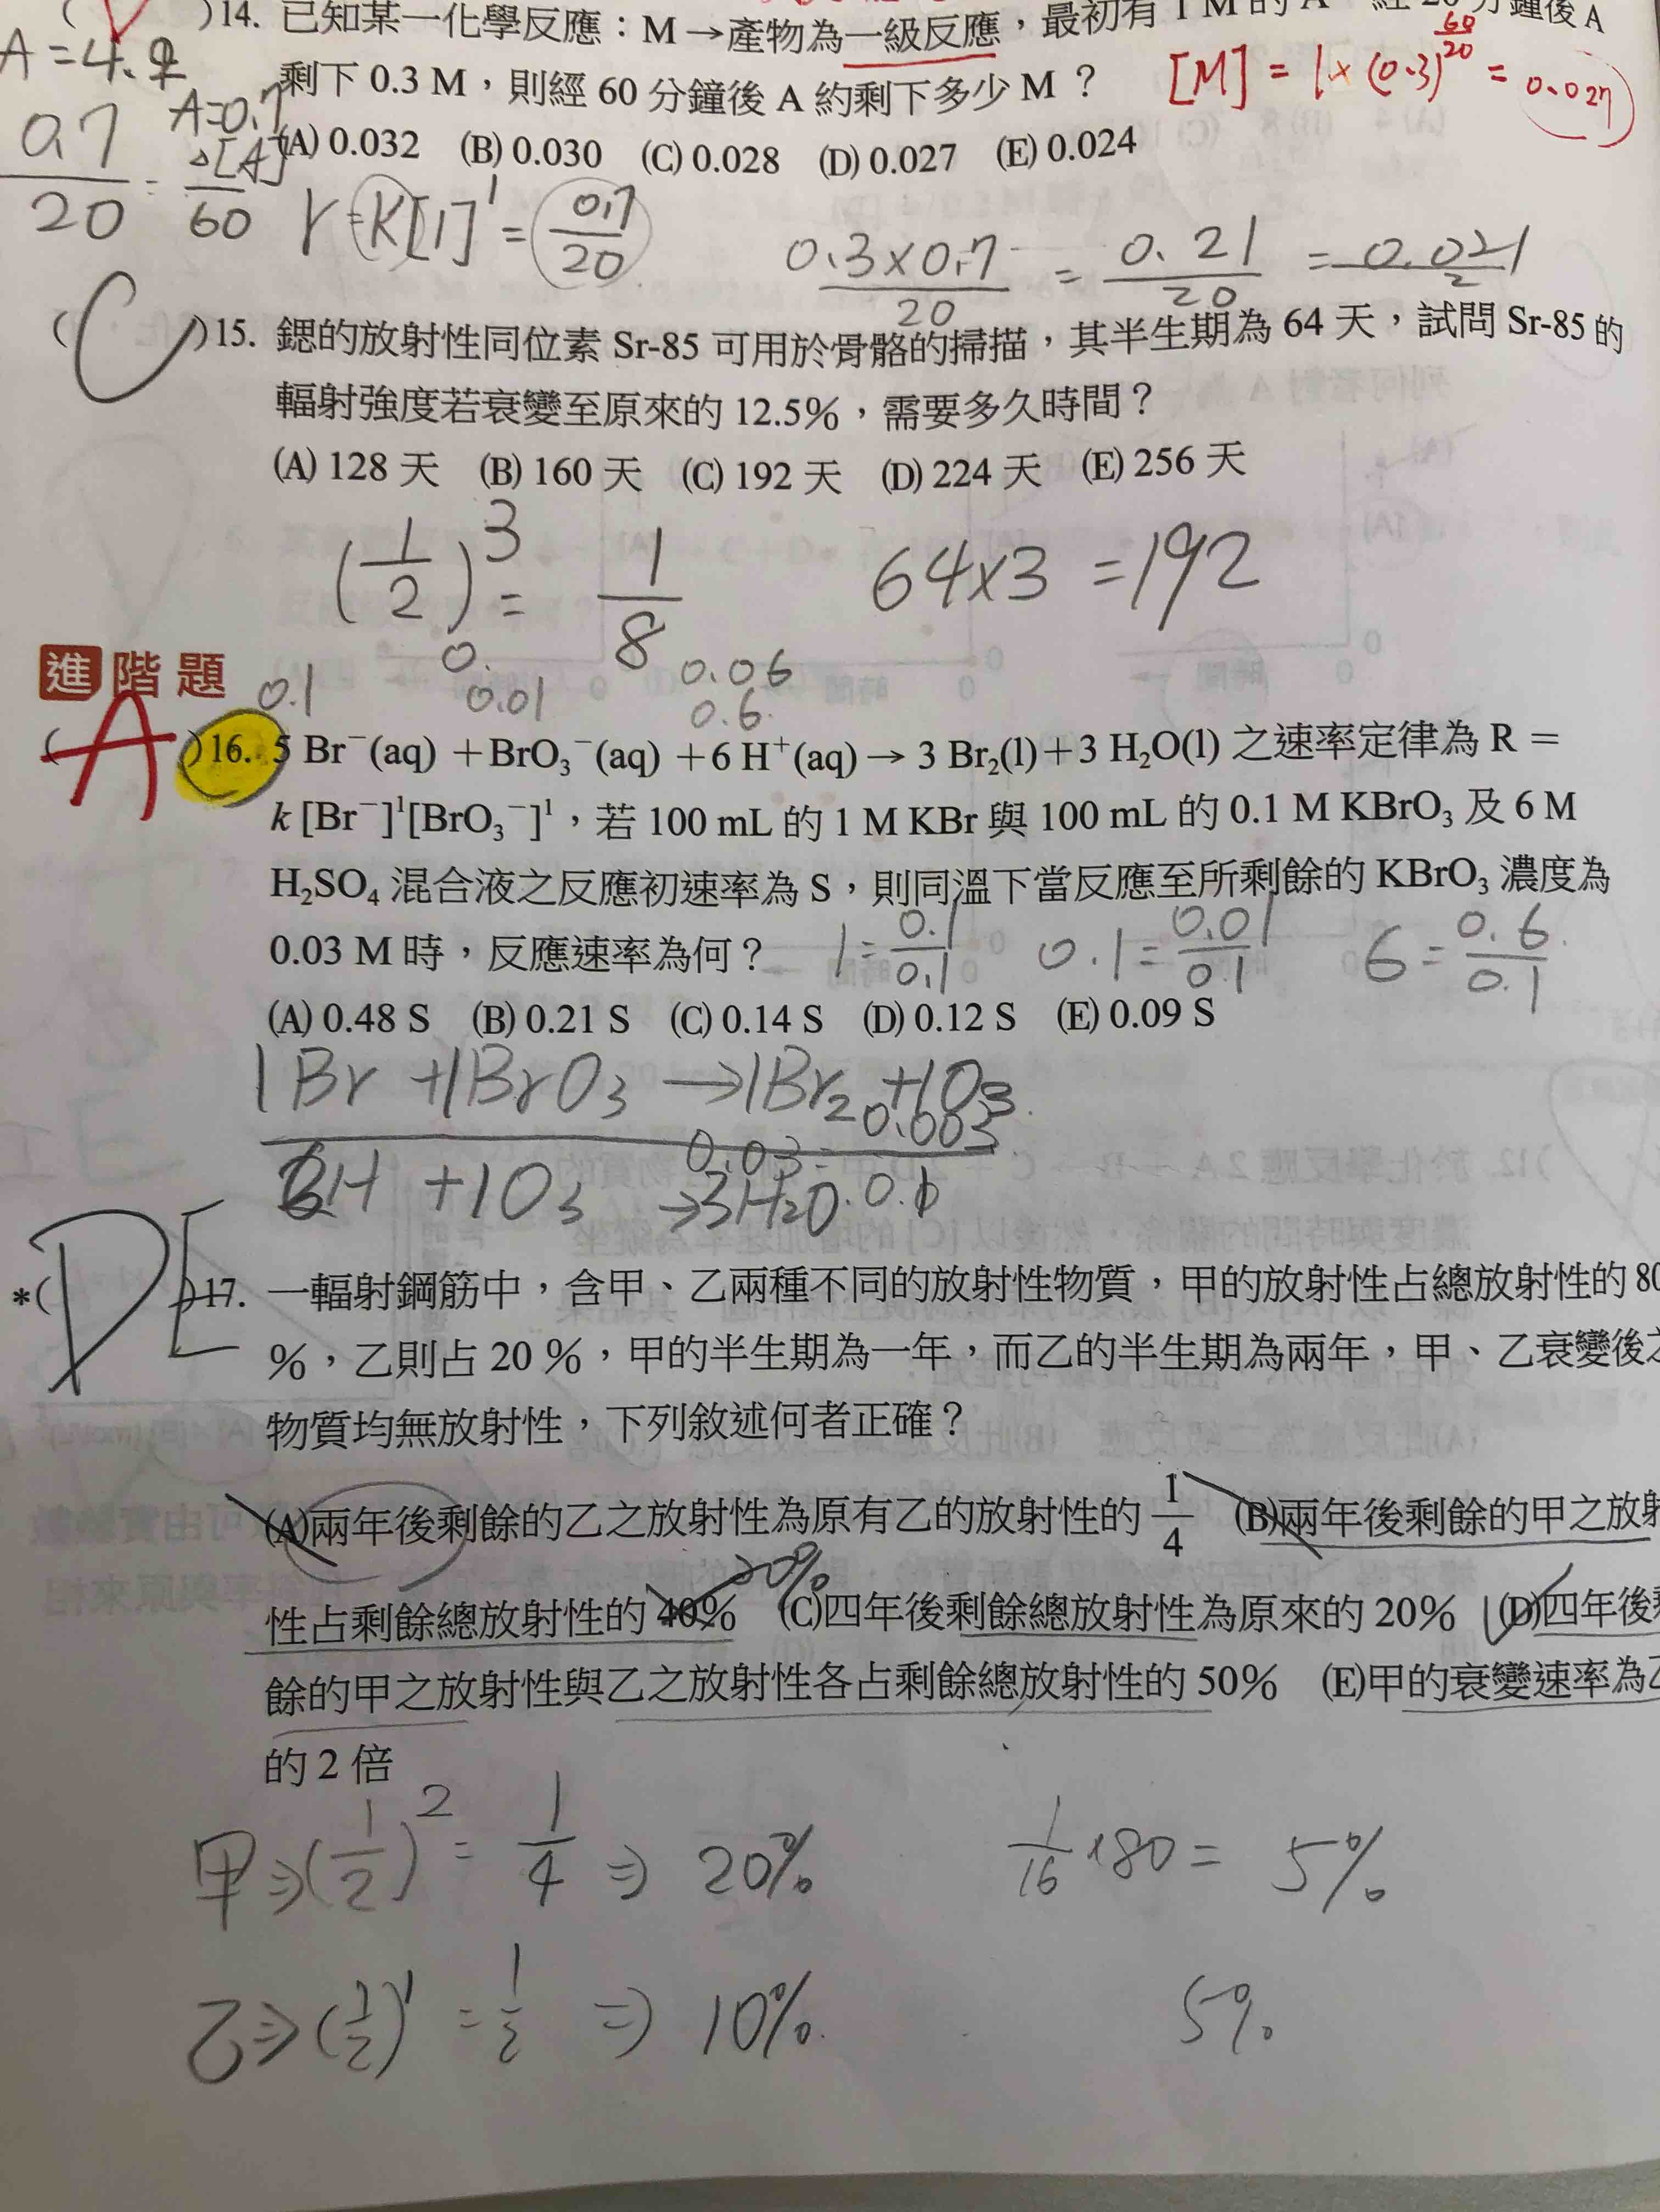 ( )14. 已知某一化學反應：M→產物為一級反應，最初有 1 M 的 A，經 20 分鐘後 A
剩下 0.3 M，則經 60 分鐘後 A 約剩下多少 M？
[M] = 1×(0.3)^(60/20) = 0.027
A=4.
A=0.7
(A) 0.032 (B) 0.030 (C) 0.028 (D) 0.027 (E) 0.024
0.7/20 = Δ[A]/60
r=k[1]¹=0.7/20
0.3×0.7/20 = 0.21/20 = 0.021/2
(C)15. 鍶的放射性同位素 Sr-85 可用於骨骼的掃描，其半生期為 64 天，試問 Sr-85 的
輻射強度若衰變至原來的 12.5%，需要多久時間？
(A) 128 天 (B) 160 天 (C) 192 天 (D) 224 天 (E) 256 天
(1/2)³ = 1/8 64×3=192
進階題
0. 0.06
0.1 0.01 0.6
(A)16. 5 Br⁻(aq)+BrO₃⁻(aq)+6 H⁺(aq)→3 Br₂(l)+3 H₂O(l) 之速率定律為 R =
k [Br⁻]¹[BrO₃⁻]¹，若 100 mL 的 1 M KBr 與 100 mL 的 0.1 M KBrO₃ 及 6 M
H₂SO₄ 混合液之反應初速率為 S，則同溫下當反應至所剩餘的 KBrO₃ 濃度為
0.03 M 時，反應速率為何？
1=0.1/0.1 0.1=0.01/0.1 6=0.6/0.1
(A) 0.48 S (B) 0.21 S (C) 0.14 S (D) 0.12 S (E) 0.09 S
1Br+1BrO₃→1Br₂+1O₃
0.03=0.003/0.1
6H+1O₃→3H₂O
*(DE)17. 一輻射鋼筋中，含甲、乙兩種不同的放射性物質，甲的放射性占總放射性的 80
%，乙則占 20 %，甲的半生期為一年，而乙的半生期為兩年，甲、乙衰變後之
物質均無放射性，下列敘述何者正確？
(A)兩年後剩餘的乙之放射性為原有乙的放射性的 1/4 (B)兩年後剩餘的甲之放射
20%
性占剩餘總放射性的 40% (C)四年後剩餘總放射性為原來的 20% (D)四年後剩
餘的甲之放射性與乙之放射性各占剩餘總放射性的 50% (E)甲的衰變速率為乙
的 2 倍
甲⇒(1/2)²=1/4⇒20% 1/16×80=5%
乙⇒(1/2)¹=1/2⇒10% 5%